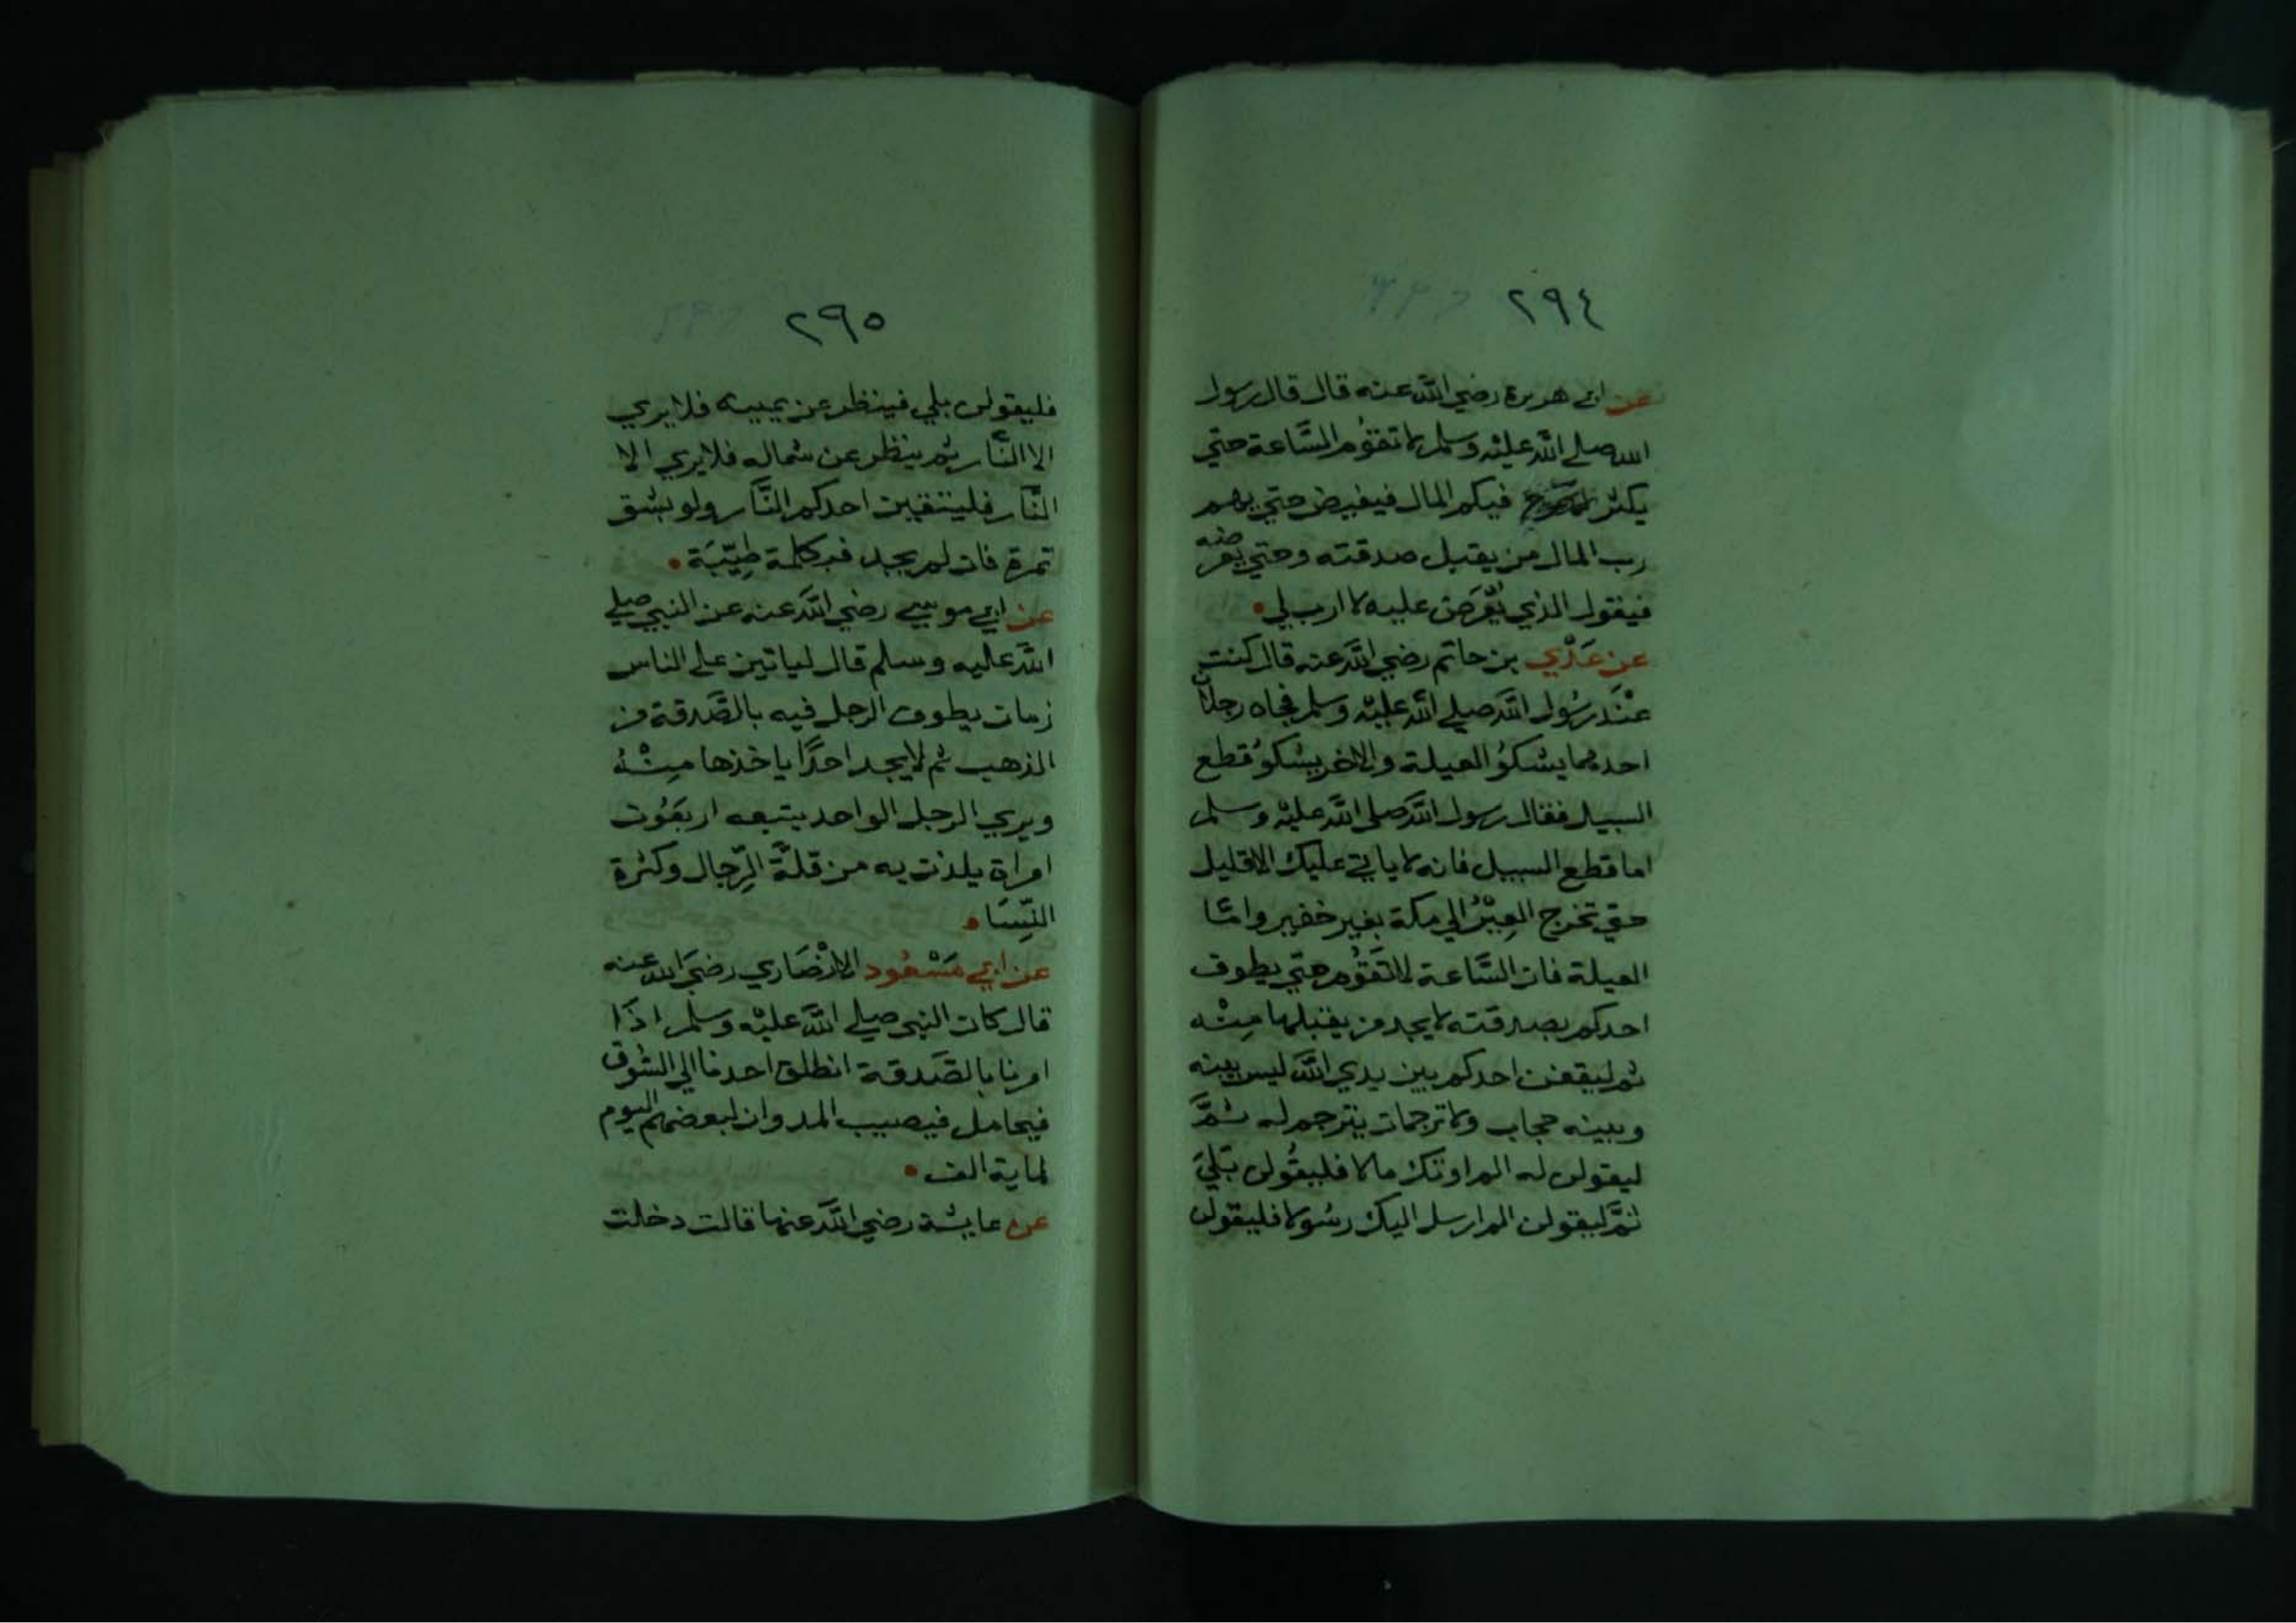 ٢٩٤
عن ابي هريرة رضي الله عنه قال قال رسول
الله صلي الله عليه وسلم لا تقوم السَّاعة حتي
يكثر فيكم المال فيفيض حتي يهم
رب المال من يقبل صدقته وحتي يعرضه
فيقول الذي يُعْرَضُ عليه لا ارب لي
عن عَدْي بن حاتم رضي الله عنه قال كنت
عنْدَ رسُول الله صلي الله عليْه وسلم فجاه رجلان
احدهما يشكوُ العيلة والاخر يشكوُ قطع
السبيل فقال رسول الله صلي الله عليْه وسلم
اما قطع السبيل فانه لا ياتي عليك الا قليل
حتي تخرج العِيْرُ الي مكة بغير خفير وامَّا
العيلة فان السَّاعة لا تَقوُم حتي يطوف
احدكم بصدقته لا يجد من يقبلها مِنْه
ثم ليقفن احدكم بين يدي الله ليس بينه
وبينه حجاب ولا ترجمان يترجم له ثمَّ
ليقولن له الم اوتك مالا فليقُولن بَلَي
ثمَّ ليقولن الم ارسل اليك رسُولا فليقولن
٢٩٥
فليقولن بلي فينظر عن يمينه فلا يري
الا النَّار ثم ينظر عن شماله فلا يري الا
النَّار فليتقين احدكم النَّار ولو بشق
تمرة فان لم يجد فبكلمة طيِّبَة
عن ابي موسي رضي الله عنه عن النبي صلي
الله عليه وسلم قال لياتين علي الناس
زمان يطوف الرجل فيه بالصَّدقة من
الذهب ثم لا يجد احدًا ياخذها مِنْهُ
ويري الرجل الواحد يتبعه اربعُون
امراة يلذن به من قلَّة الرِّجال وكثرة
النِّسَا
عن ابي مَسْعُود الانْصَاري رضيَ الله عنه
قال كان النبي صلي الله عليْه وسلم اذَا
امرنا بالصَّدقة انطلق احدنا الي السُّوق
فيحامل فيصيب المد وان لبعضهم اليوم
لماية الف
عن عايشة رضي الله عنها قالت دخلت